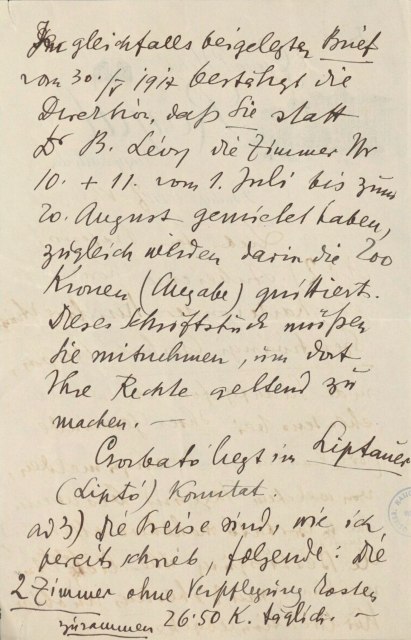 Im gleichfalls beigelegten Brief
vom 30./V 1917 bestätigt die
Direktion, daß Sie statt
Dr B. Lévy die Zimmer Nr
10. + 11. vom 1. Juli bis zum
20. August gemietet haben,
zugleich werden darin die 200
Kronen (Angabe) quittiert.
Dieses Schriftstück müßen
Sie mitnehmen, um dort
Ihre Rechte geltend zu
machen. —
Csorbató liegt im Liptauer
(Liptó) Komitat.
ad 3) Die Preise sind, wie ich
bereits schrieb, folgende: Die
2 Zimmer ohne Verpflegung kosten
zusammen 26·50 K. täglich. —